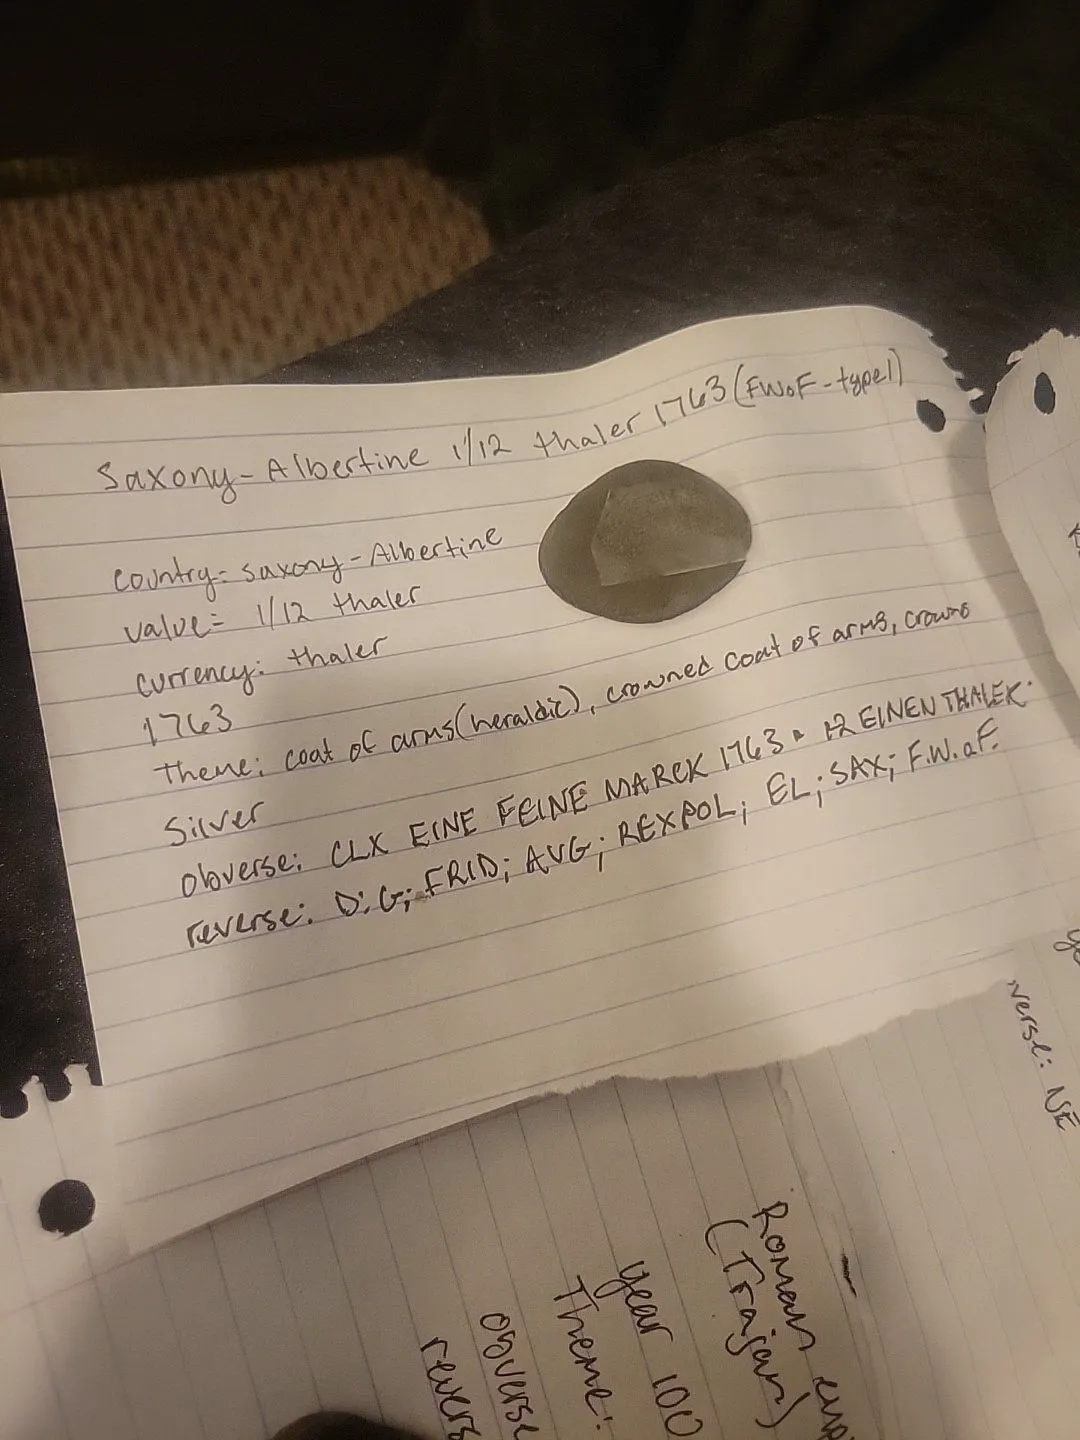 Saxony-Albertine 1/12 thaler 1763 (FWoF-type1)
country= saxony-Albertine
value= 1/12 thaler
currency: thaler
1763
theme: coat of arms (heraldic), crowned coat of arms, crowns
Silver
obverse: CLX EINE FEINE MARCK 1763 • 12 EINEN THALER•
reverse: D:G; FRID; AVG; REXPOL; EL; SAX; F.W.oF.
verse: NE
Roman
(Trajan)
year 100
Theme:
obverse
revers